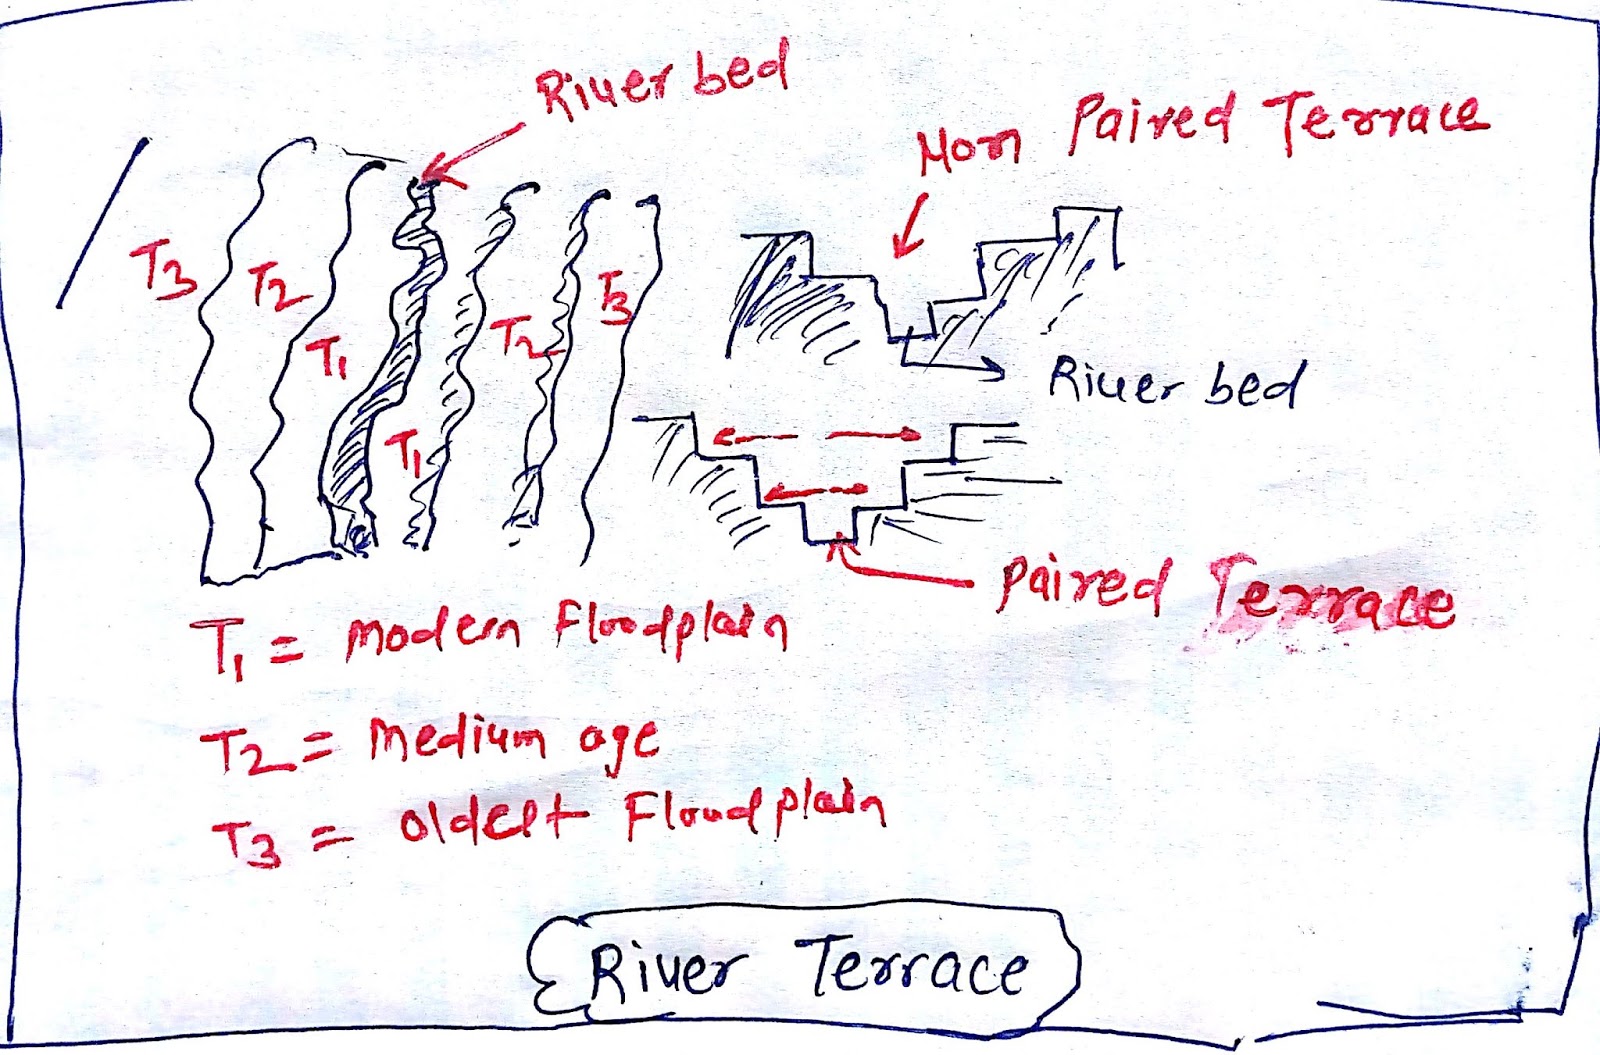 River bed
Non Paired Terrace
T3
T2
T1
T1
T2
T3
River bed
Paired Terrace
T1 = Modern Floodplain
T2 = Medium age
T3 = Oldest Floodplain
River Terrace